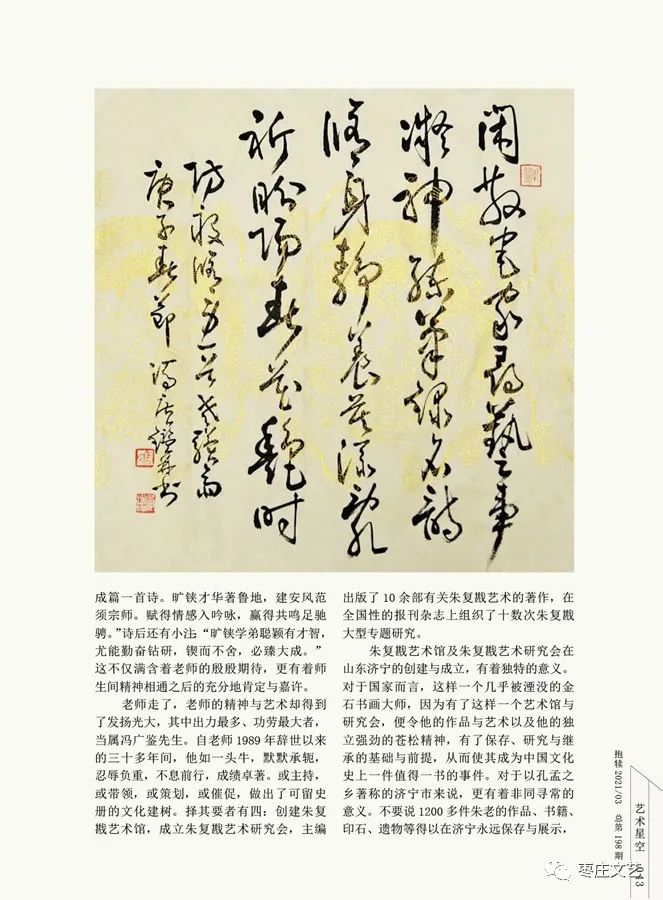 闲散宅家寻艺事
凝神练笔录名诗
修身静养莫添乱
祈盼阳春花艳时
防疫
庚子春节 冯广鉴并书
成篇一首诗。旷铗才华著鲁地，建安风范
须宗师。赋得情感入吟咏，赢得共鸣足驰
骋。”诗后还有小注：“旷铗学弟聪颖有才智，
尤能勤奋钻研，锲而不舍，必臻大成。”
这不仅满含着老师的殷殷期待，更有着师
生间精神相通之后的充分地肯定与嘉许。
老师走了，老师的精神与艺术却得到
了发扬光大，其中出力最多、功劳最大者，
当属冯广鉴先生。自老师 1989 年辞世以来
的三十多年间，他如一头牛，默默承轭，
忍辱负重，不息前行，成绩卓著。或主持，
或带领，或策划，或催促，做出了可留史
册的文化建树。择其要者有四：创建朱复
戡艺术馆，成立朱复戡艺术研究会，主编
出版了 10 余部有关朱复戡艺术的著作，在
全国性的报刊杂志上组织了十数次朱复戡
大型专题研究。
朱复戡艺术馆及朱复戡艺术研究会在
山东济宁的创建与成立，有着独特的意义。
对于国家而言，这样一个几乎被湮没的金
石书画大师，因为有了这样一个艺术馆与
研究会，便令他的作品与艺术以及他的独
立强劲的苍松精神，有了保存、研究与继
承的基础与前提，从而使其成为中国文化
史上一件值得一书的事件。对于以孔孟之
乡著称的济宁市来说，更有着非同寻常的
意义。不要说 1200 多件朱老的作品、书籍、
印石、遗物等得以在济宁永远保存与展示，
抱犊 2021/03 总第 198 期
艺术星空
043
枣庄文艺